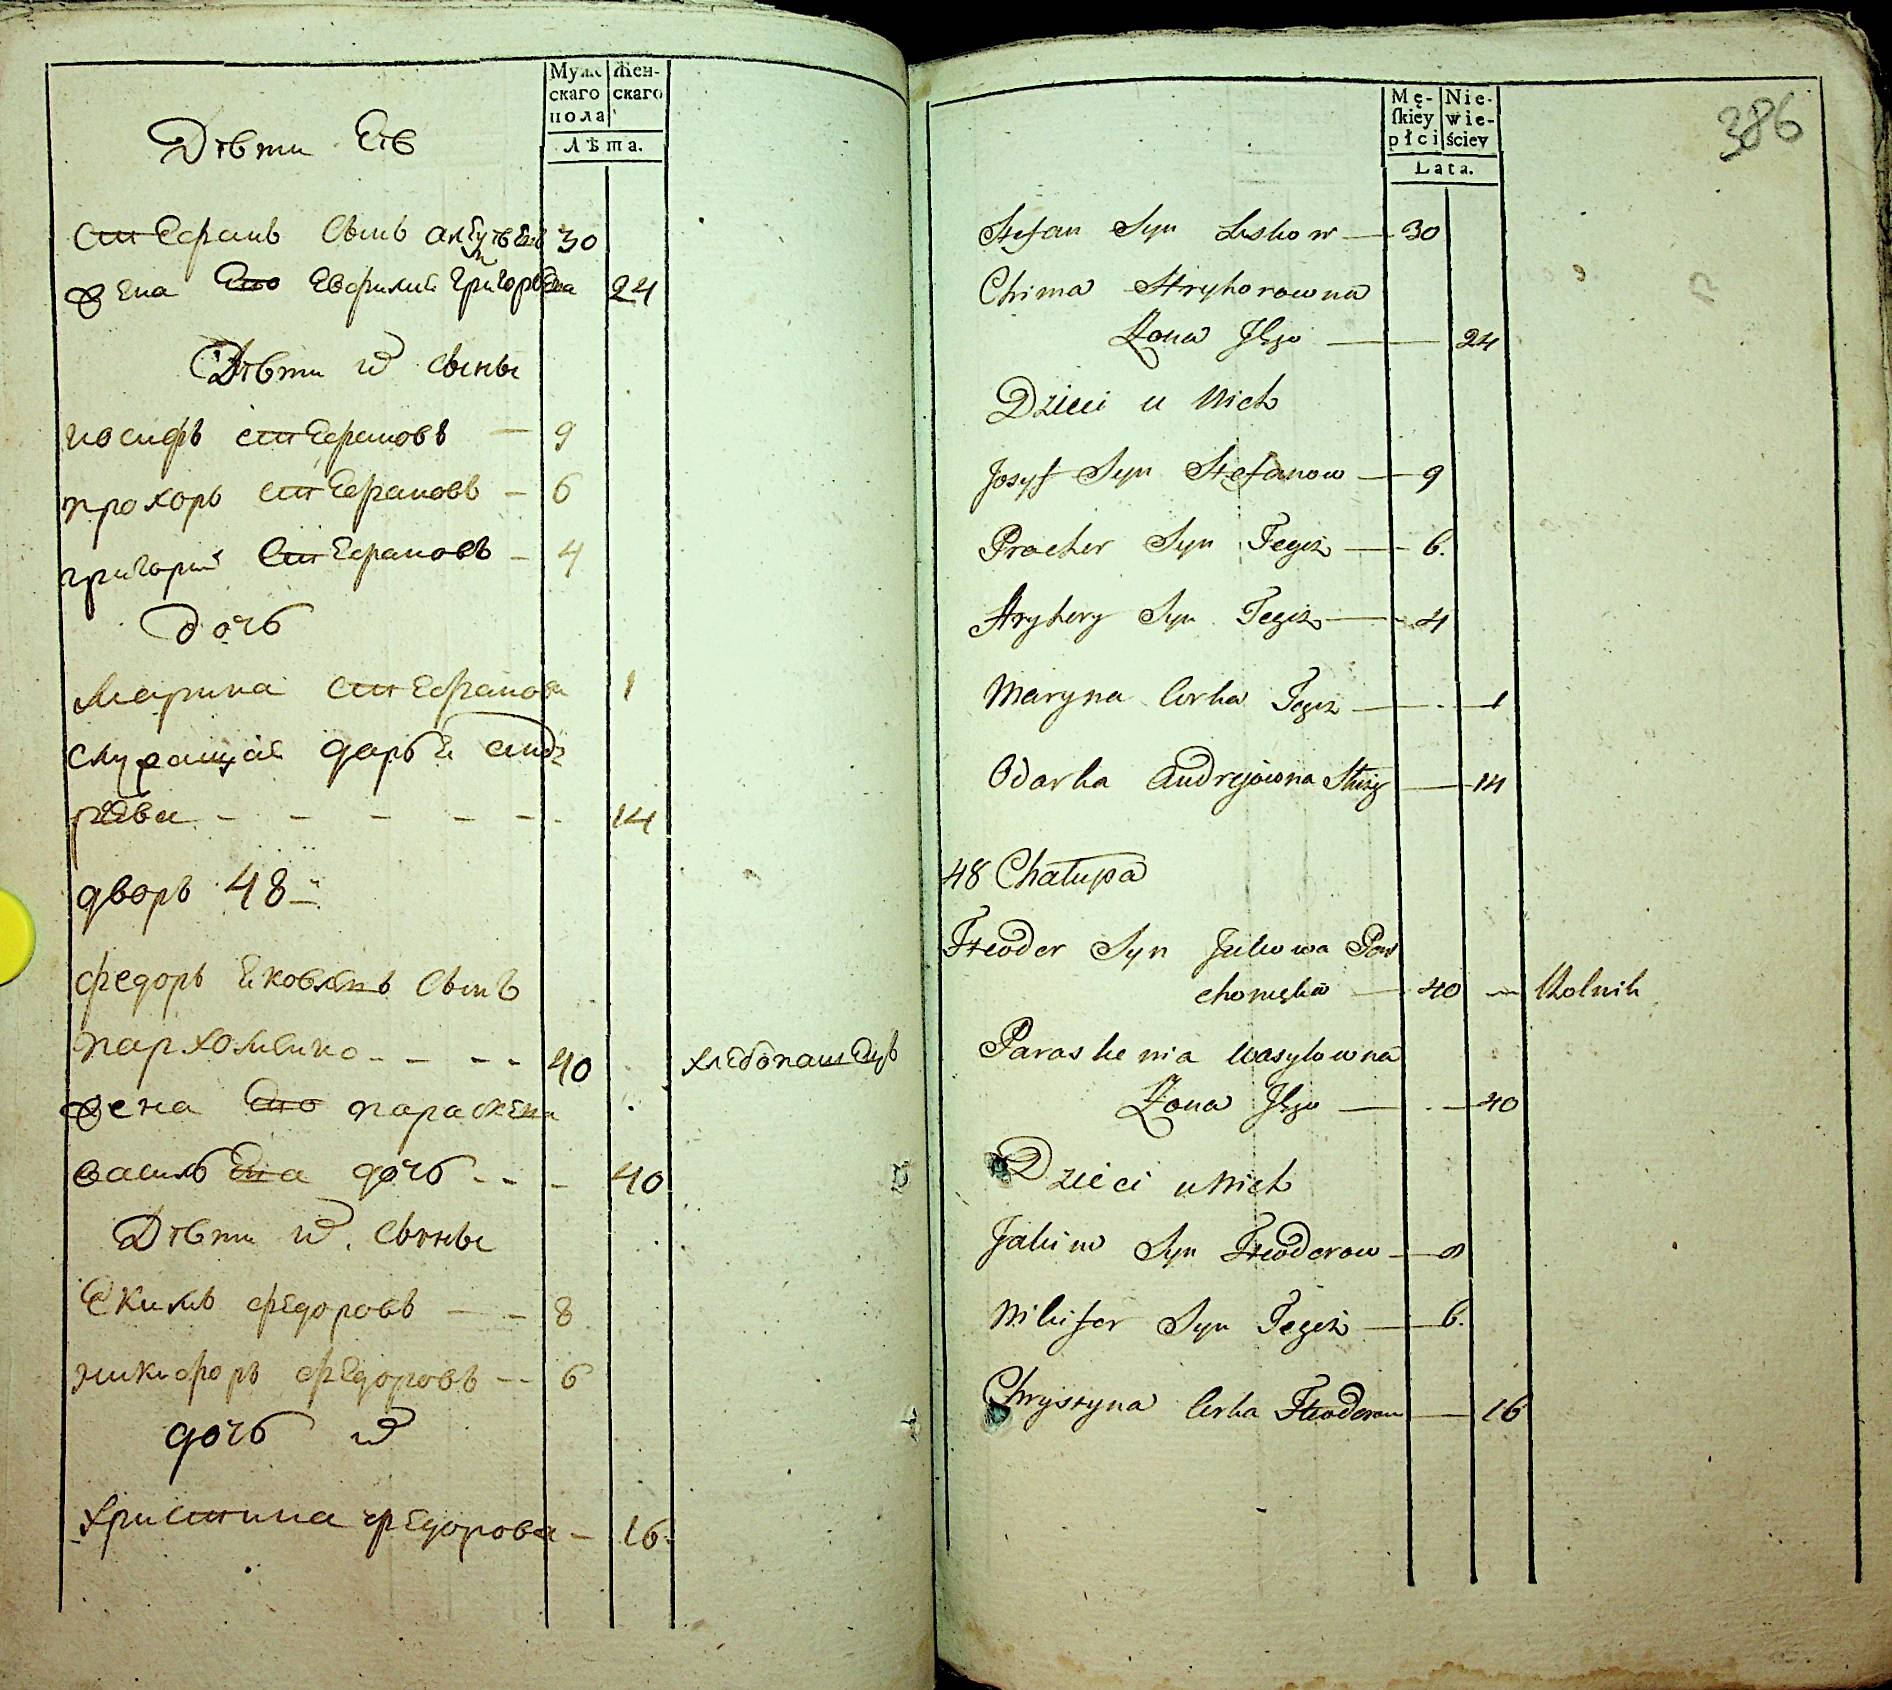 Муже
скаго
пола
Жен-
скаго
Лѣта.
Дѣти Еѣ
Стефанъ Сынъ 30
жена Его Евфимия Григорьева 24
Дѣти ихъ сыны
иосифъ стефановъ — 9
прохоръ стефановъ — 6
григорий Стефановъ — 4
дочь
марина стефанова 1
служащая дарья анд
реева - - - - - - 14
дворъ 48й
федоръ яковлевъ Сынъ
пархоменко - - - - 40 хлебопашецъ
жена Его параскева
василева дочь - - - 40
Дѣти ихъ сыны
Екимъ федоровъ — - 8
никифоръ федоровъ - - 6
дочь ихъ
христина федорова - 16
Mę-
ſkiey
płci
Nie-
wie-
ściey
Lata.
386
Stefan Syn Leskow — 30
Chima Hryhorowna
Zona Jego — 24
Dzieci u Nich
Josyf Syn Stefanow — 9
Procher Syn Tegoż — 6.
Hryhory Syn Tegoż — 4
Maryna Corka Tegoż — 1
Odarka Andrejowna Służ — 14
48 Chałupa
Fteoder Syn Jakowa Par
chomęko — 40 — Rolnik
Paraskewia Wasylowna
Zona Jego — 40
Dzieci u Nich
Jakim Syn Fteoderow — 8
Nikifor Syn Tegoż — 6.
Chrystyna Corka Fteoderow — 16